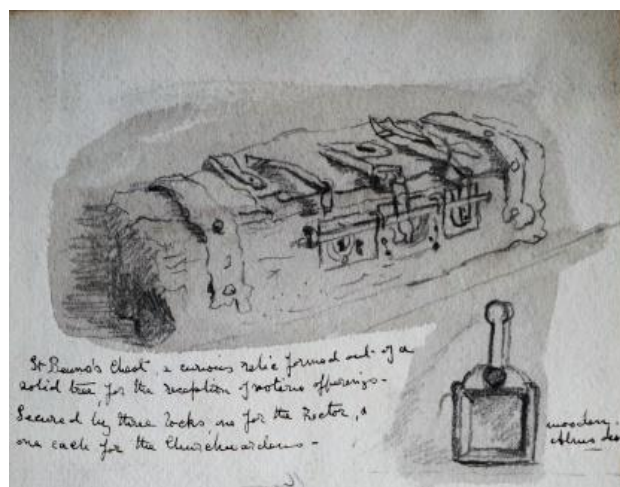 St Beuno's Chest, a curious relic formed out of a
solid tree, for the reception of votive offerings.
Secured by three locks, one for the Rector, &
one each for the Churchwardens -
wooden
Alms